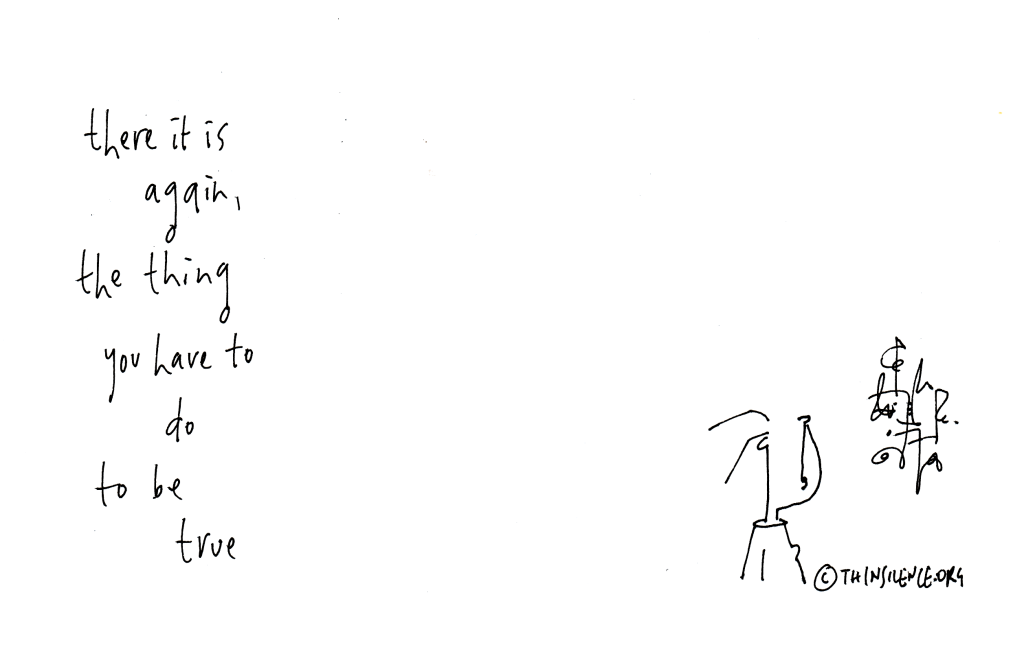 there it is
again,
the thing
you have to
do
to be
true
© THINSILENCE.ORG